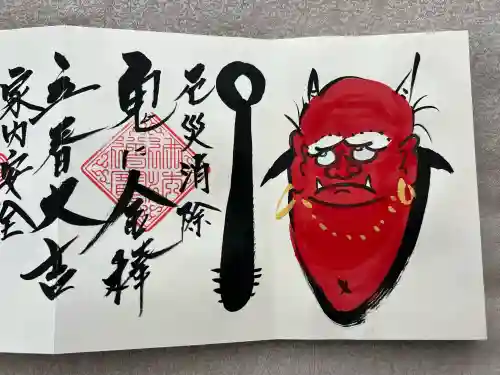 厄災消除
鬼に金棒
立春大吉
家内安全